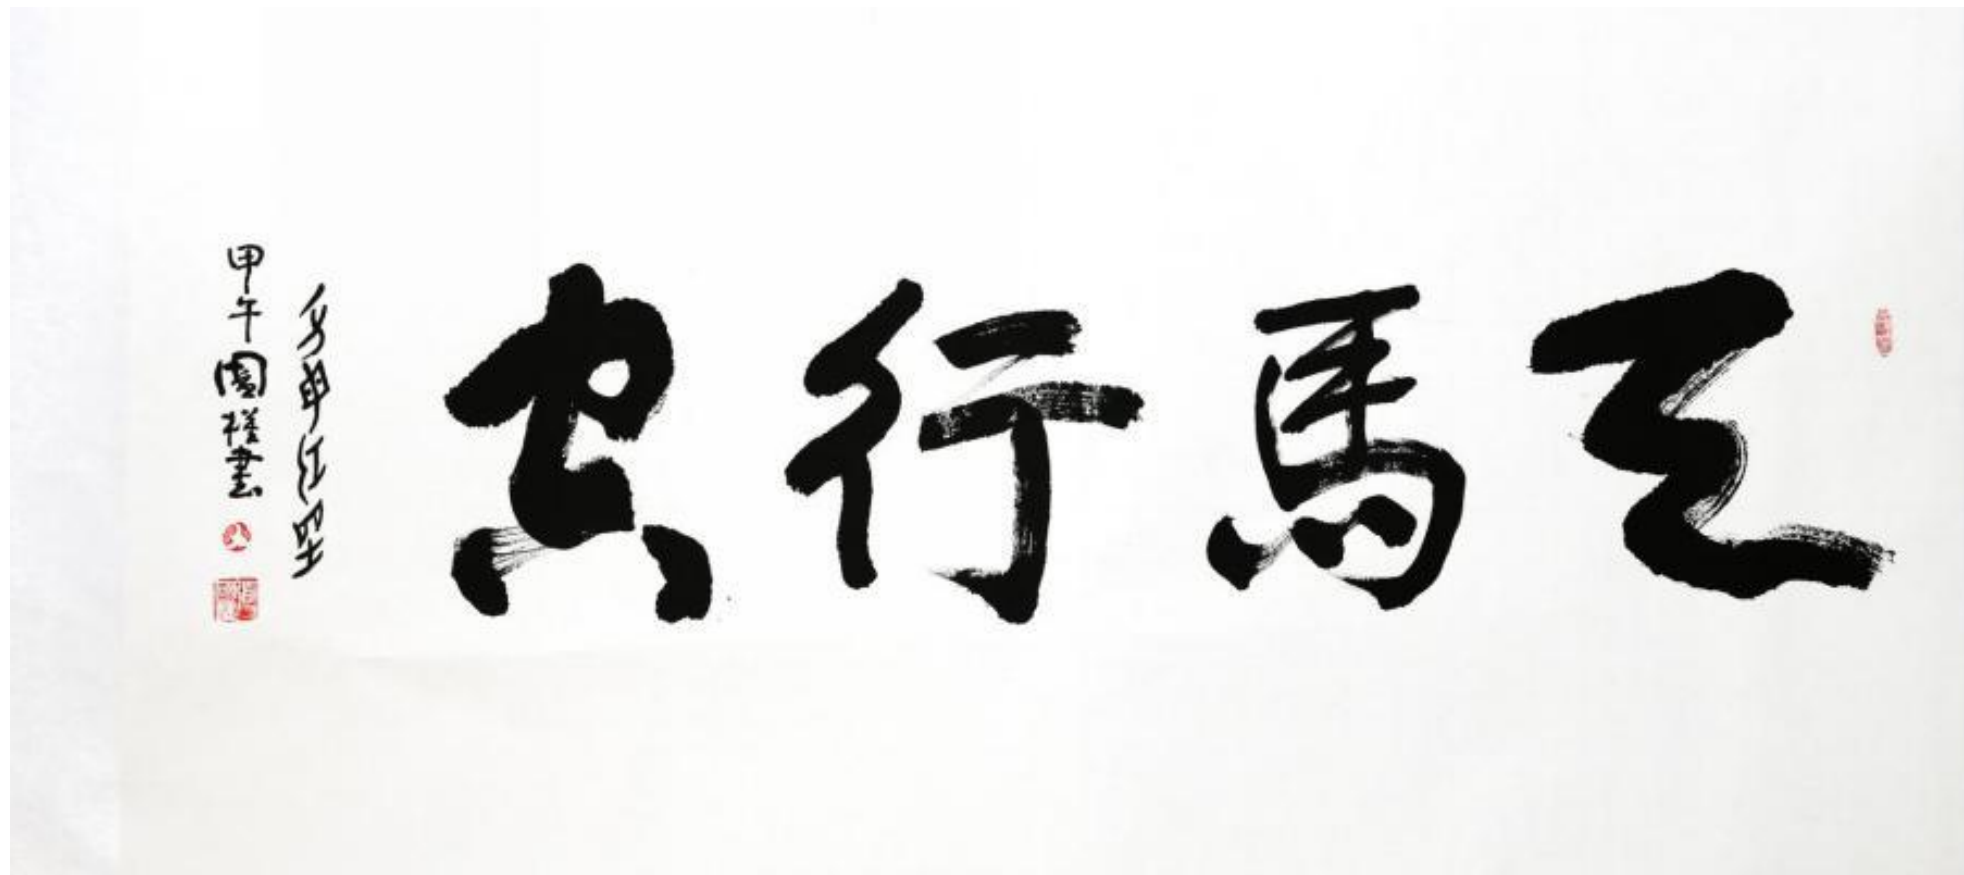 天馬行空
甲午國祥書